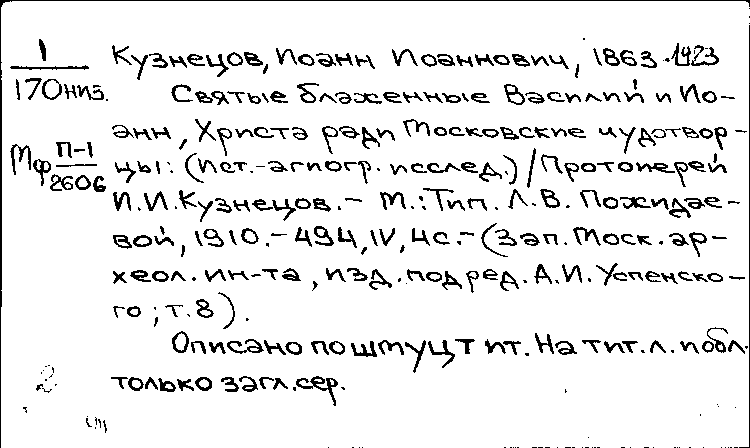 1
170низ.
Мф П-1
2606
Кузнецов, Иоанн Иоаннович, 1863-1923
Святые блаженные Василий и Ио-
анн, Христа ради Московские чудотвор-
цы: (Ист.-агиогр. исслед.) / Протоиерей
И.И.Кузнецов.- М.: Тип. Л.В. Пожидае-
вой, 1910.- 494, IV, 4с.- (Зап. Моск. ар-
хеол. ин-та, изд. под ред. А.И. Успенско-
го; т.8).
Описано по шмуцтит. На тит.л. и обл.
только загл.сер.
2